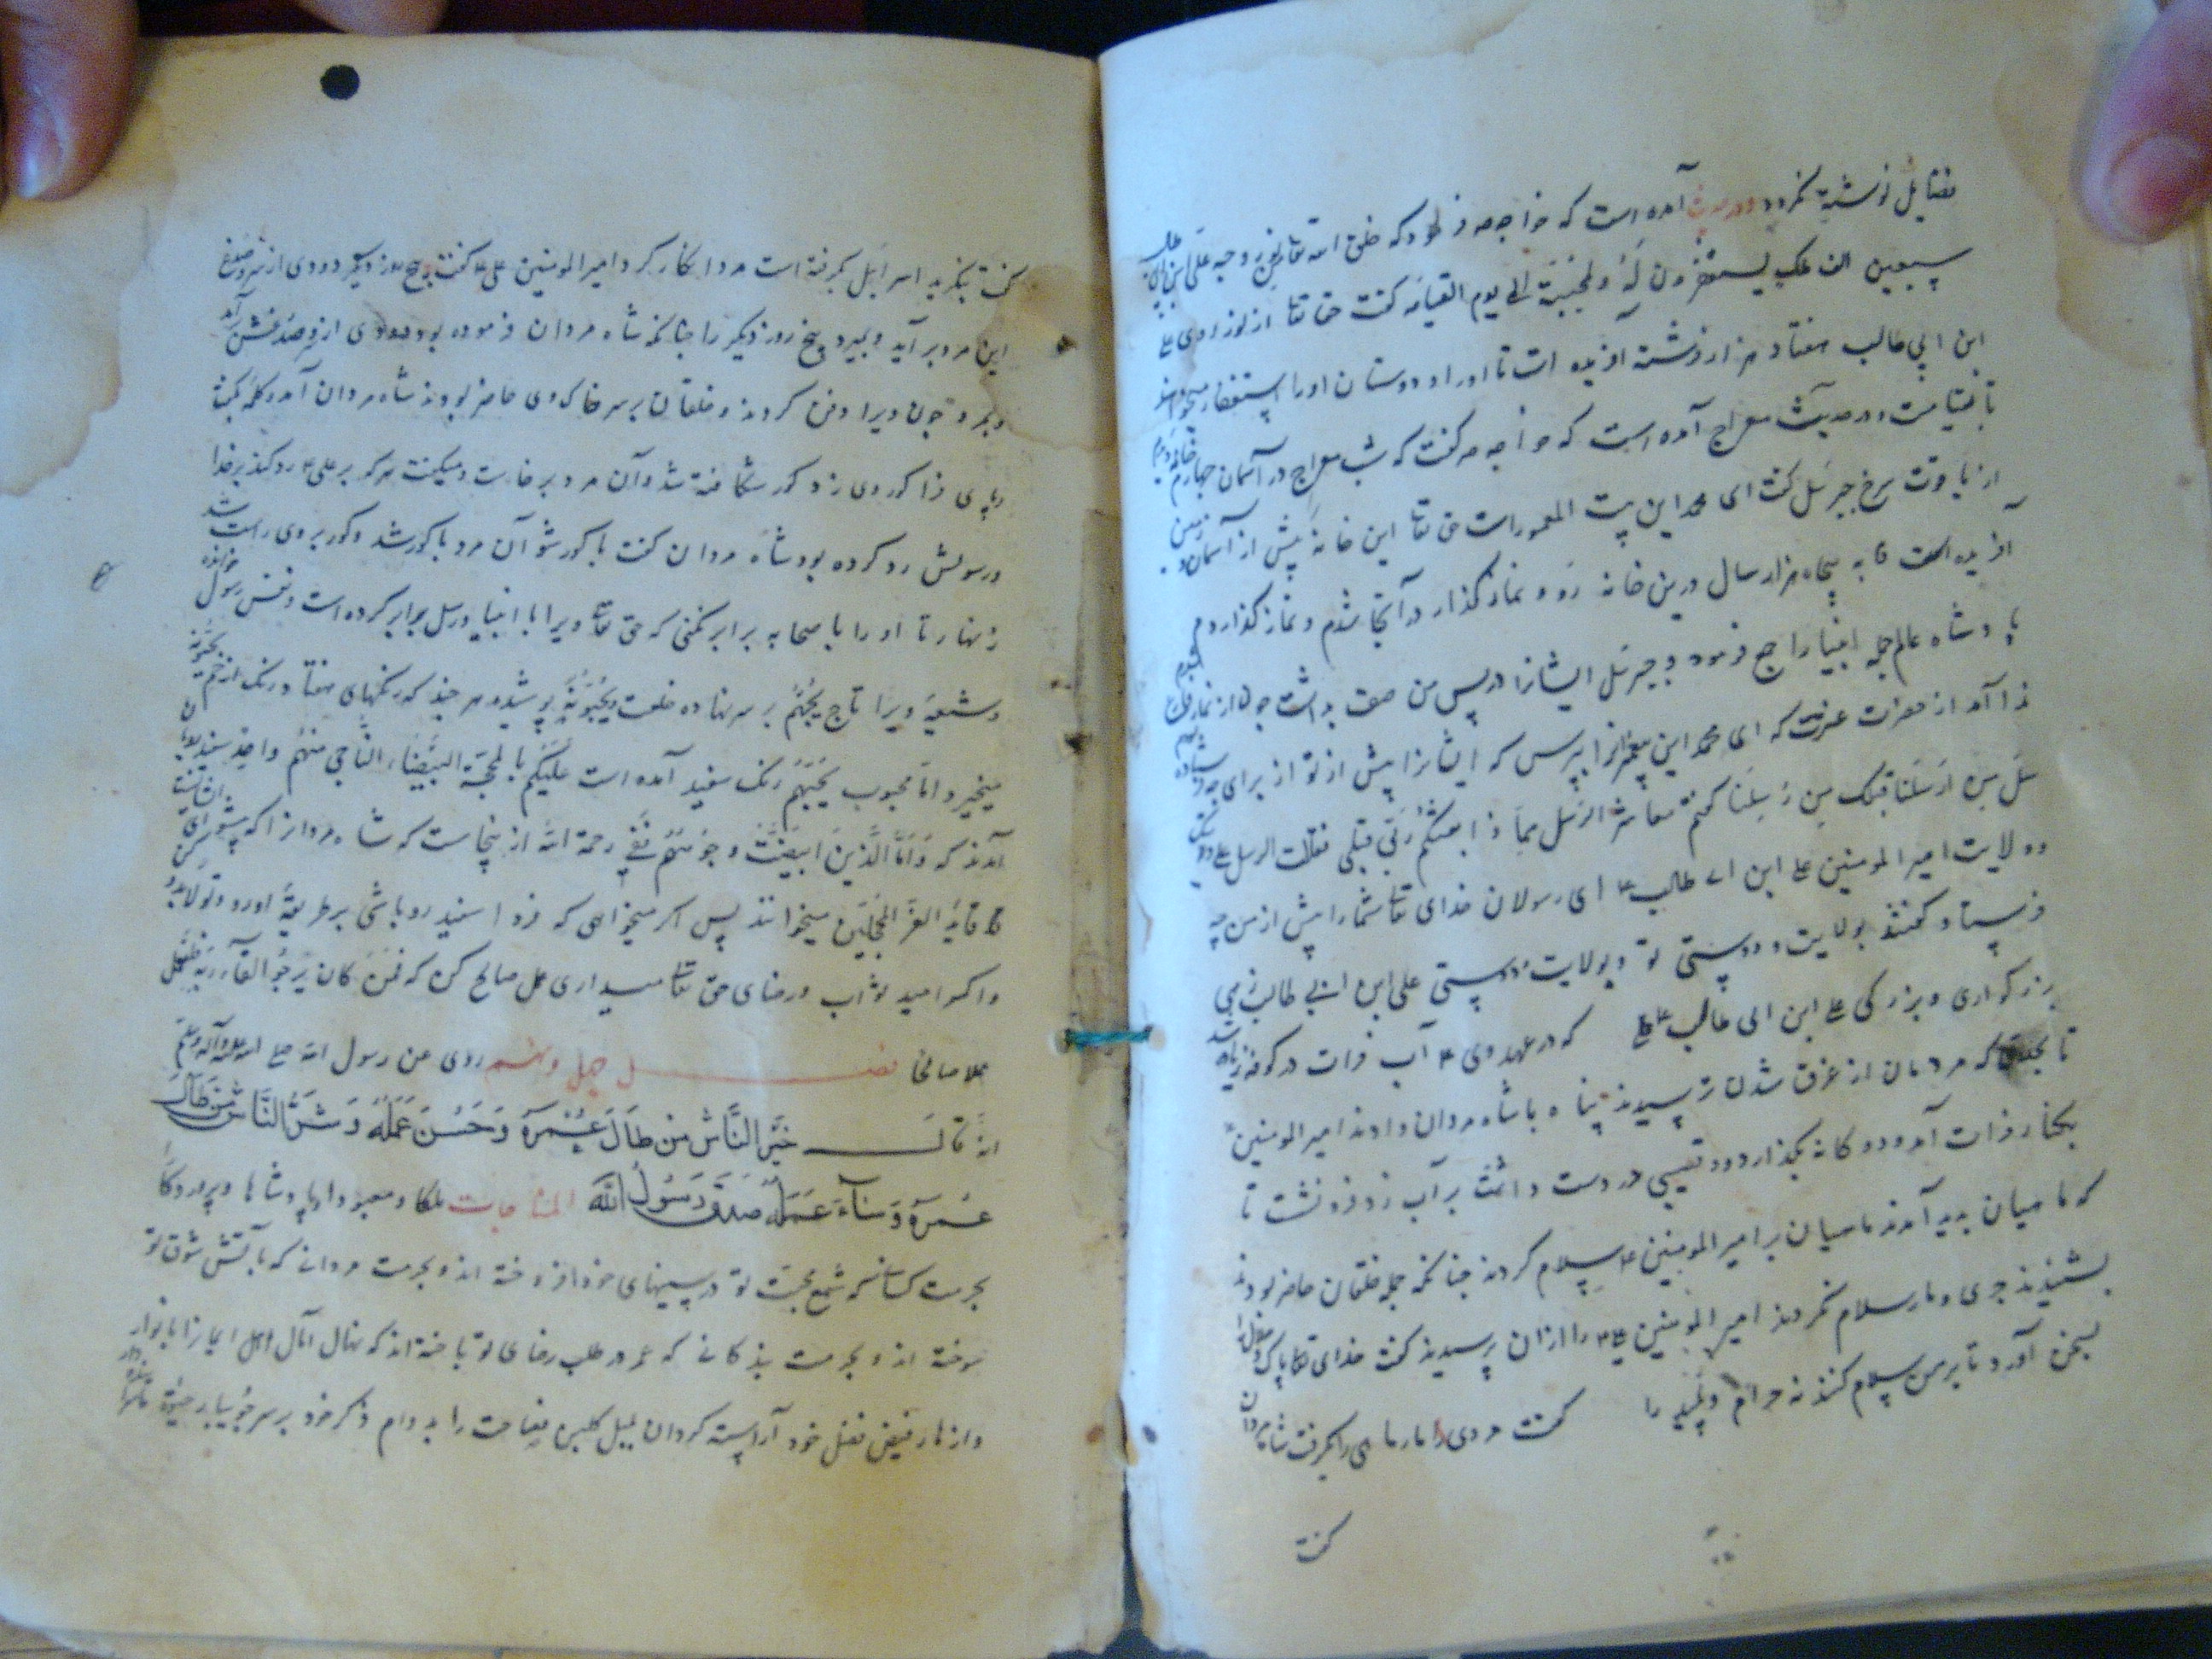 فضایل نوشته گردد و در حدیث آمده است که خواجه فرمود که خلق الله تعالی من نور وجه علی ابن ابی طالب
سبعین الف ملک یستغفرون له ولمحبیه الی یوم القیامه گفت حق تعا از نور روی علی
ابن ابی طالب هفتاد هزار فرشته آفریده است تا او را و دوستان او را استغفار میخواهند
تا بقیامت و در حدیث معراج آمده است که خواجه گفت که شب معراج در آسمان چهارم خانه دیدم
از یاقوت سرخ جبرئیل گفت ای محمد این بیت المعمور است حق تعا این خانه پیش از آسمان و زمین
آفریده است به پنجاه هزار سال درین خانه رو و نماز گذار در آنجا شدم و نماز گذاردم
پادشاه عالم جمله انبیا را جمع فرمود و جبرئیل ایشانرا در پس من صف بداشت چون از نماز فارغ شدم
ندا آمد از حضرت عزت که ای محمد این پیغمبرانرا بپرس که ایشانرا پیش از تو از برای چه فرستاده بودم
سل من ارسلنا قبلک من رسلنا گفتم معاشر الرسل بماذا بعثکم ربی قبلی فقالت الرسل علی
وولایت امیر المومنین علی ابن ابی طالب ای رسولان خدای تعا شما را پیش از من بچه
فرستاد گفتند بولایت و دوستی تو و بولایت و دوستی علی ابن ابی طالب زهی
بزرگواری و بزرگی علی ابن ابی طالب که در عهد وی آب فرات در کوفه زیاده شد
تا بحدی که مردمان از غرق شدن ترسیدند پناه با شاه مردان دادند امیر المومنین
بکنار فرات آمد و دوگانه بگذارد و قضیبی در دست داشت بر آب زد فرو نشست تا
که ماهیان پدید آمدند ماهیان بر امیر المومنین سلام کردند چنانکه جمله خلقان حاضر بودند
بشنیدند جری و مار سلام نکردند امیر المومنین را از آن پرسیدند گفت خدای تعا پاک و حلال را
بسخن آورد تا بر من سلام کنند نه حرام و پلید را گفت مردی مارماهی را بگرفت شاه مردان
گفت
گفت بنگرید اسرائیل بگرفته است مرد انکار کرد امیر المومنین علی گفت پنج روز دیگر دودی از
این مرد بر آید و بمیرد پنج روز دیگر را چنانکه شاه مردان فرموده بود دودی از وی بر آمد
و بمرد چون ویرا دفن کردند و خلقان بر سر خاک وی حاضر بودند شاه مردان آمد و کلمه بگفت
و پای فرا گور وی زد گور شکافته شد و آن مرد بر خاست و میگفت هر که بر علی رد کند بر خدا
و رسولش رد کرده بود شاه مردان گفت با گور شو آن مرد با گور شد و گور بر وی راست شد
زنهار تا او را با صحابه برابر نکنی که حق تعا ویرا با انبیا و رسل برابر کرده است و نفس رسول خوانده
و شیعه ویرا تاج یحبهم بر سر نهاده خلعت ویحبونه پوشیده هر چند که رنگهای هفتاد رنگ از خم یحبونه
میخیزد اما محبوب یحبهم رنگ سفید آمده است علیکم بالمحجة البیضاء الناجی منهم واحد سفید رویان
آمدند که وَاَمَّا الَّذِینَ ابیَضَّتْ وجوههم ففی رحمة الله از ینجاست که شاه مردانرا که پیشوای ایشانست
قائد الغر المحجلین میخوانند پس اگر میخواهی که فردا سفید رو باشی بر طریقه او رو و تولا بدو کن
و اگر امید ثواب و رضای حق تعا میداری عمل صالح کن که فمن کان یرجو القاء ربه فلیعمل
عملا صالحا فصل چهل و نهم روی عن رسول الله صلی الله علیه وآله وسلم
انه قال خَیْرُ النَّاسِ مَن طَالَ عُمْرُهُ وَحَسُنَ عَمَلُهُ وَشَرُّ النَّاسِ مَن طَالَ
عُمْرُهُ وَسَاءَ عَمَلُهُ صَدَقَ رَسُولُ الله المناجات ملکا و معبودا و پادشاها و پروردگارا
بحرمت کسانیکه شمع محبت تو در سینهای خود افروخته اند و بحرمت مردانی که بآتش شوق تو
سوخته اند و بحرمت بندگانی که عمر در طلب رضای تو باخته اند که نهال آمال اهل ایمانرا بانوار
و ازهار فیض فضل خود آراسته گردان بلبل گلبن فصاحت را بدوام ذکر خود بر سر